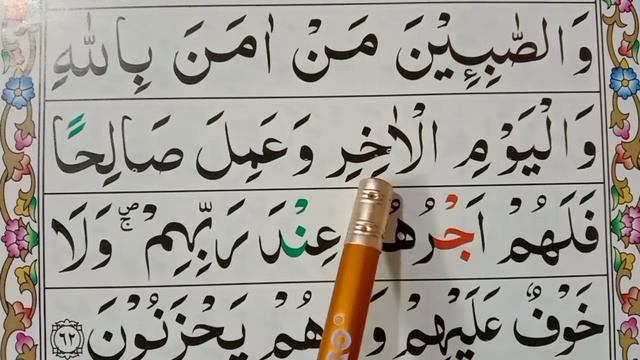 وَالصّٰبِـِٕيْنَ مَنْ اٰمَنَ بِاللّٰهِ
وَالْيَوْمِ الْاٰخِرِ وَعَمِلَ صَالِحًا
فَلَهُمْ اَجْرُهُمْ عِنْدَ رَبِّهِمْ ۚ ۖ وَلَا
خَوْفٌ عَلَيْهِمْ هُمْ يَحْزَنُوْنَ ۝۶۲